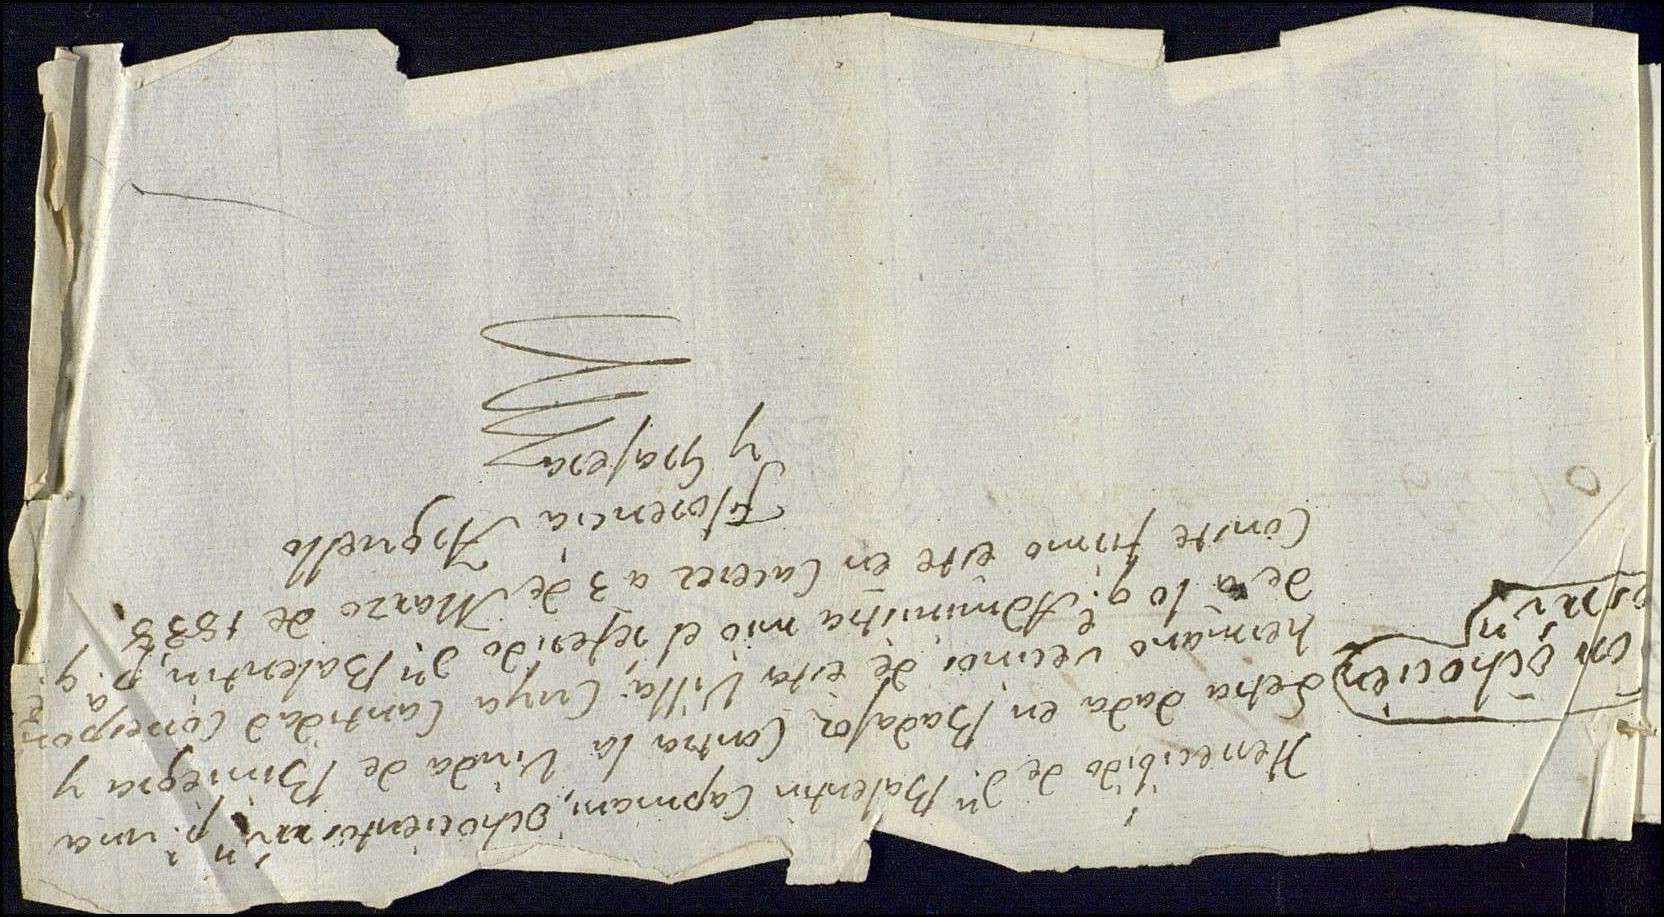 He recibido de Dn Balentin Capman, ochocientos rr. vn. pr. una
Letra dada en Badajoz Contra la Viuda de Biniegra y
hermano vecinos de esta Villa; Cuya Cantidad Correspon
de a lo qe. Administra mio el referido Dn Balentin, pa. qe.
Conste firmo este en Caceres a 3 de Marzo de
Florencia Arguello
y Grajera
Son ochocien